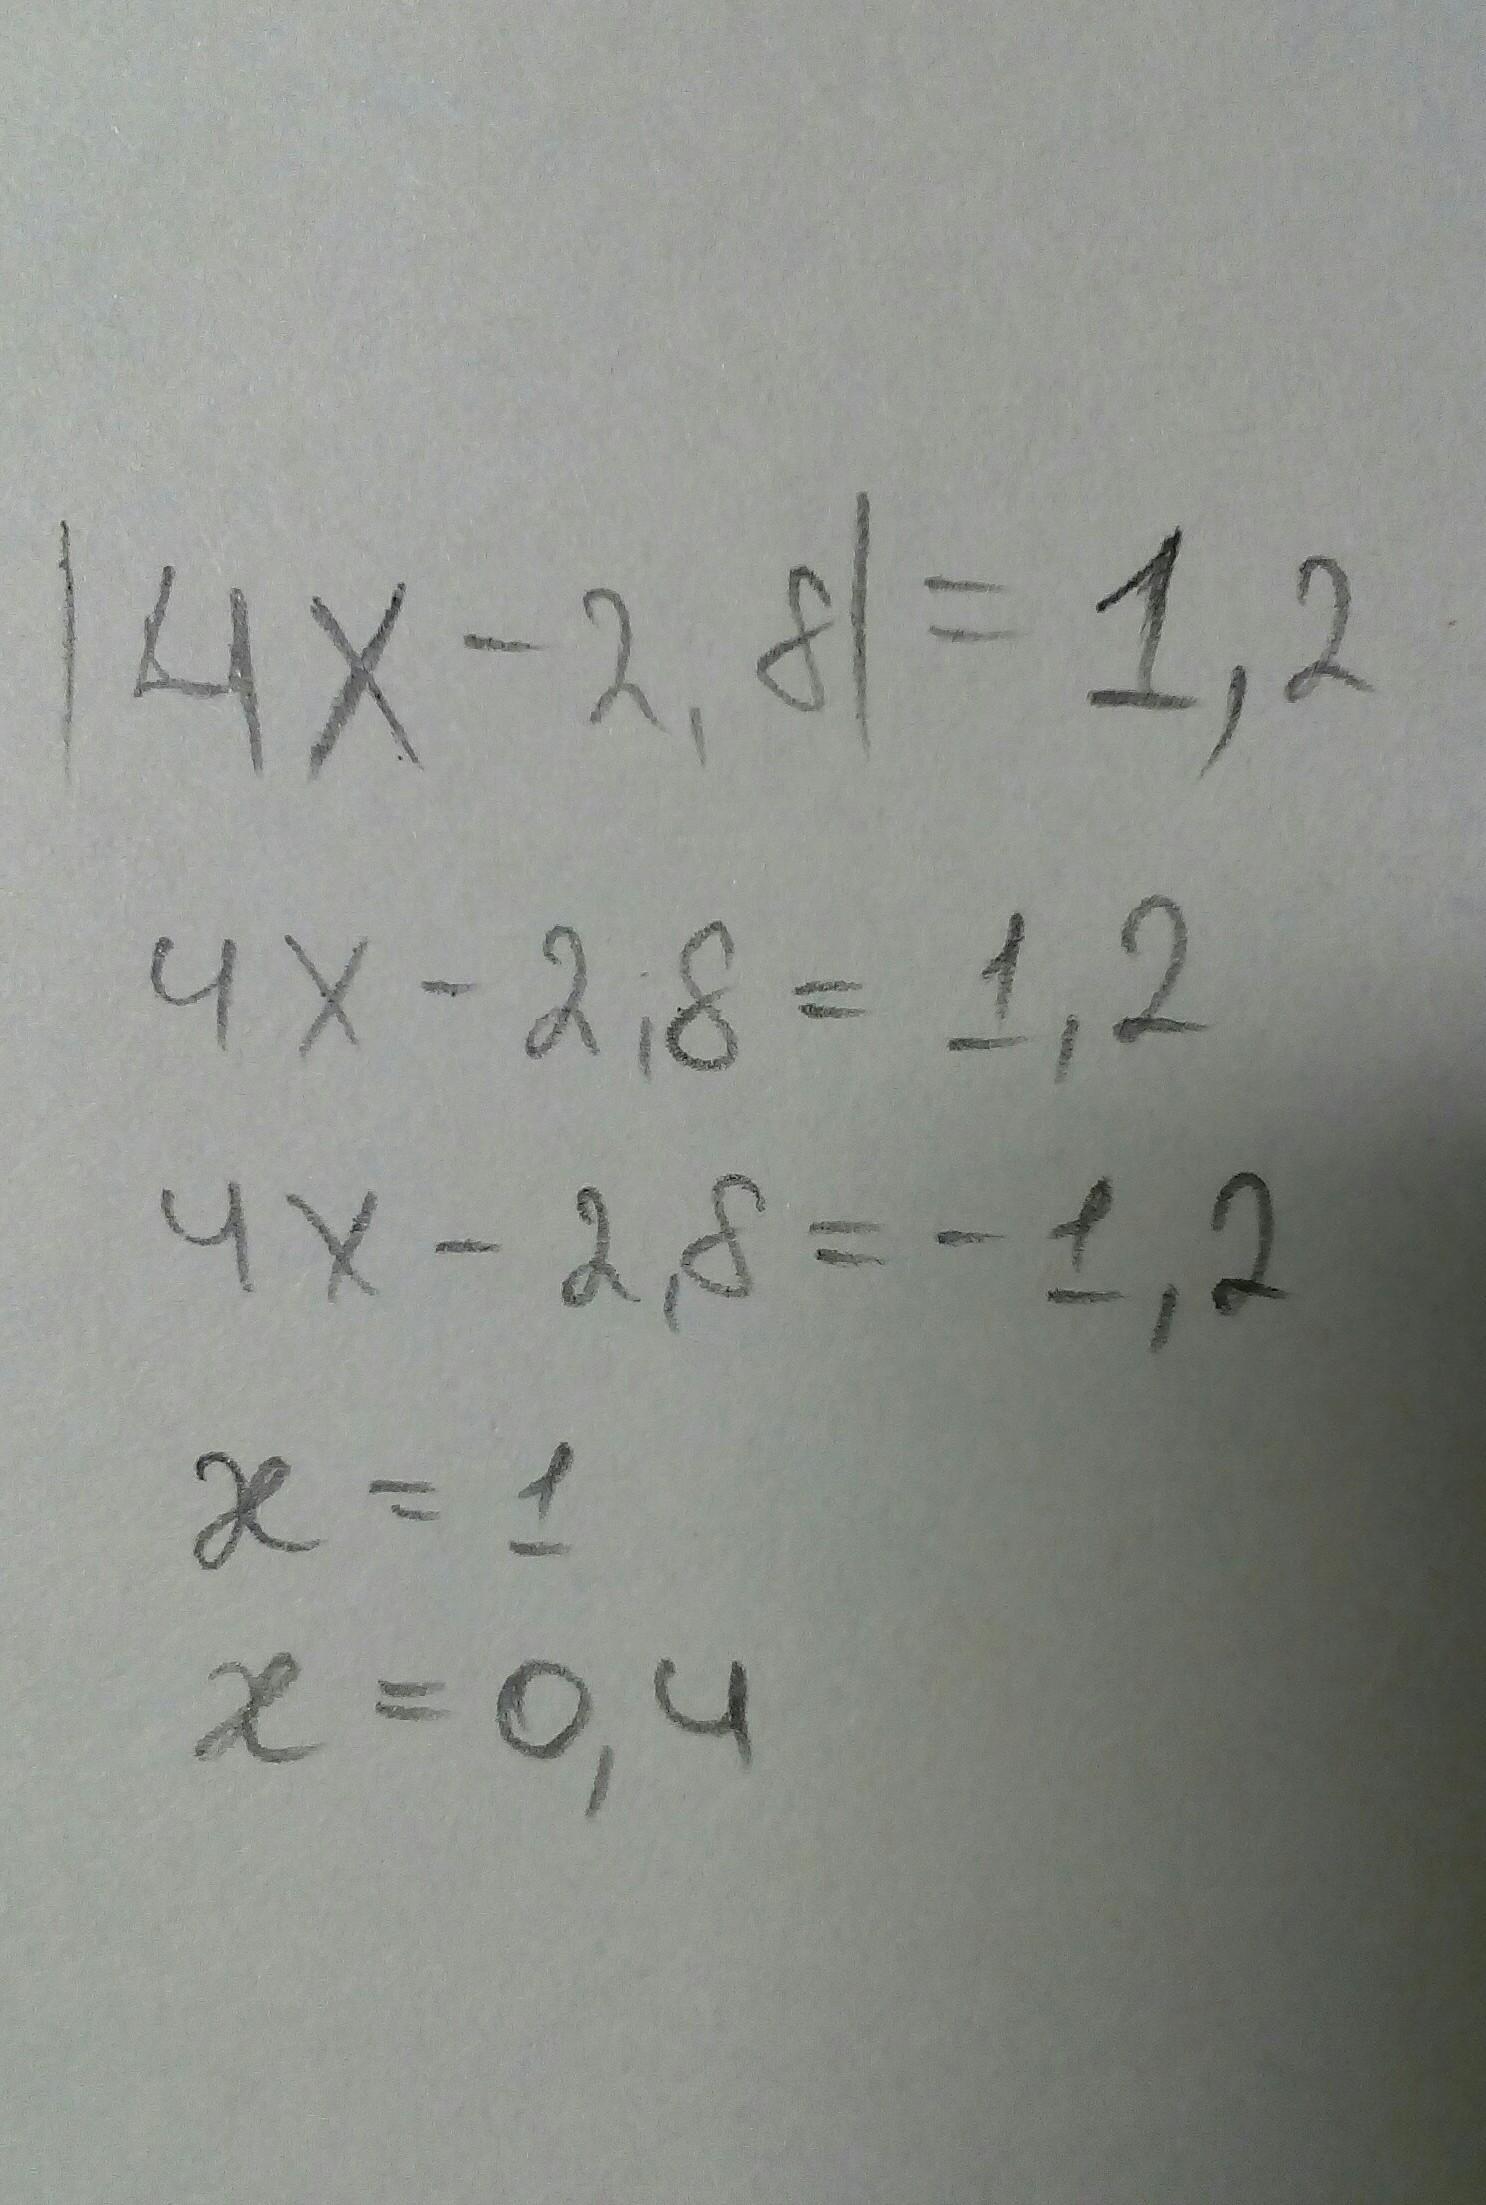 |4x-2,8|=1,2
4x-2,8=1,2
4x-2,8=-1,2
x=1
x=0,4